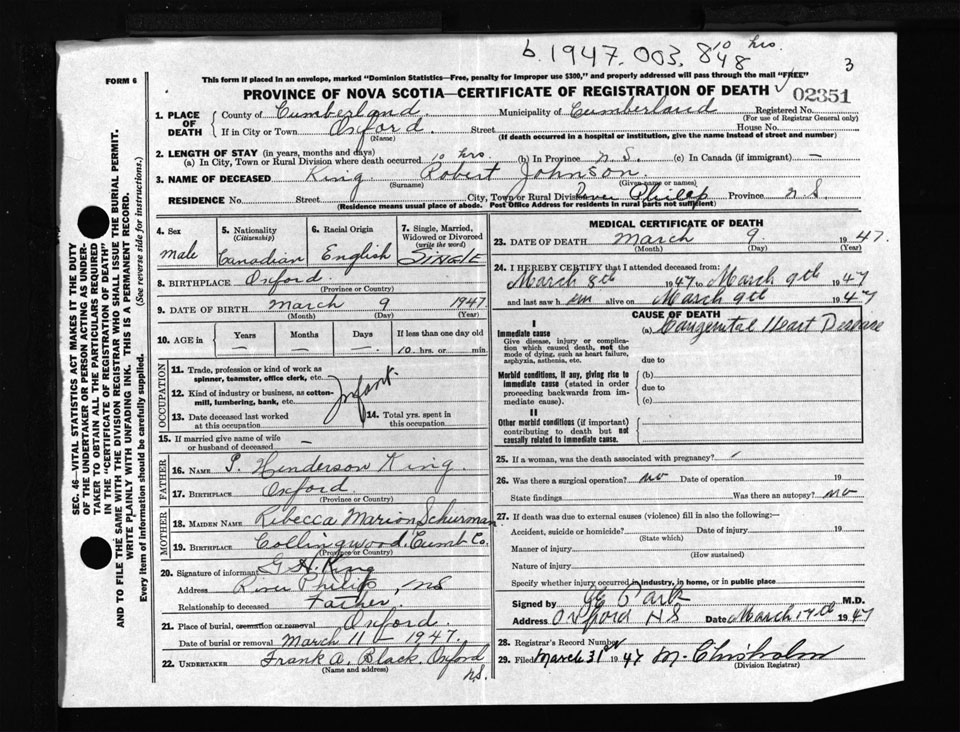 b. 1947. 003, 848 10 hrs.
3
FORM 6
This form if placed in an envelope, marked "Dominion Statistics—Free, penalty for improper use $300," and properly addressed will pass through the mail "FREE"
PROVINCE OF NOVA SCOTIA—CERTIFICATE OF REGISTRATION OF DEATH
02351
1. PLACE OF DEATH
County of Cumberland Municipality of Cumberland Registered No.
(For use of Registrar General only)
If in City or Town Oxford. Street House No.
(Name) (If death occurred in a hospital or institution, give the name instead of street and number)
2. LENGTH OF STAY (in years, months and days)
(a) In City, Town or Rural Division where death occurred 10 hrs. (b) In Province N.S. (c) In Canada (if immigrant) —
3. NAME OF DECEASED King. Robert Johnson.
(Surname) (Given name or names)
RESIDENCE No. Street City, Town or Rural Division River Philip Province N S
(Residence means usual place of abode. Post Office Address for residents in rural parts not sufficient)
4. Sex
male
5. Nationality
(Citizenship)
Canadian
6. Racial Origin
English
7. Single, Married, Widowed or Divorced
(write the word)
SINGLE
8. BIRTHPLACE Oxford
(Province or Country)
9. DATE OF BIRTH March 9 1947.
(Month) (Day) (Year)
10. AGE in
Years Months Days If less than one day old
— — — 10 hrs. or min.
OCCUPATION
11. Trade, profession or kind of work as spinner, teamster, office clerk, etc.
12. Kind of industry or business, as cotton-mill, lumbering, bank, etc.
Infant
13. Date deceased last worked at this occupation
14. Total yrs. spent in this occupation
15. If married give name of wife or husband of deceased —
FATHER
16. NAME Henderson King.
17. BIRTHPLACE Oxford
(Province or Country)
MOTHER
18. MAIDEN NAME Rebecca Marion Schurman.
19. BIRTHPLACE Collingwood, Cumb Co.
(Province or Country)
20. Signature of informant G H King
Address River Philip, NS
Relationship to deceased Father.
21. Place of burial, cremation or removal Oxford.
Date of burial or removal March 11 – 1947.
22. UNDERTAKER Frank A. Black, Oxford
(Name and address) N.S.
MEDICAL CERTIFICATE OF DEATH
23. DATE OF DEATH March 9 1947.
(Month) (Day) (Year)
24. I HEREBY CERTIFY that I attended deceased from:
March 8th 1947 to March 9th 1947
and last saw h em alive on March 9th 1947
CAUSE OF DEATH
I
Immediate cause
Give disease, injury or complication which caused death, not the mode of dying, such as heart failure, asphyxia, asthenia, etc.
(a) Congenital Heart Disease
due to
Morbid conditions, if any, giving rise to immediate cause (stated in order proceeding backwards from immediate cause).
(b)
due to
(c)
II
Other morbid conditions (if important) contributing to death but not causally related to immediate cause.
25. If a woman, was the death associated with pregnancy?
26. Was there a surgical operation? no Date of operation 19
State findings Was there an autopsy? no
27. If death was due to external causes (violence) fill in also the following:—
Accident, suicide or homicide? Date of injury 19
(State which)
Manner of injury
(How sustained)
Nature of injury
Specify whether injury occurred in industry, in home, or in public place
Signed by M.D.
Address Oxford N S Date March 17th 1947
28. Registrar's Record Number
29. Filed March 31st 1947 M. Chisholm
(Division Registrar)
SEC. 46—VITAL STATISTICS ACT MAKES IT THE DUTY
OF THE UNDERTAKER OR PERSON ACTING AS UNDER-
TAKER TO OBTAIN ALL THE PARTICULARS REQUIRED
IN THE "CERTIFICATE OF REGISTRATION OF DEATH"
AND TO FILE THE SAME WITH THE DIVISION REGISTRAR WHO SHALL ISSUE THE BURIAL PERMIT.
WRITE PLAINLY WITH UNFADING INK. THIS IS A PERMANENT RECORD.
Every item of information should be carefully supplied. (See reverse side for instructions.)